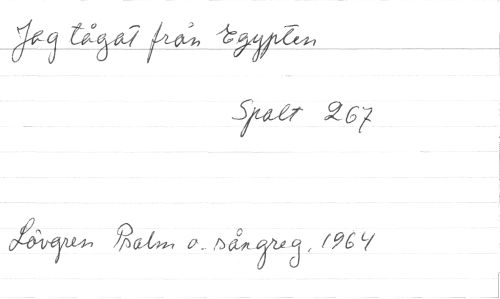 Jag tågat från Egypten
Spalt 267
Lövgren Psalm o. sångreg. 1964